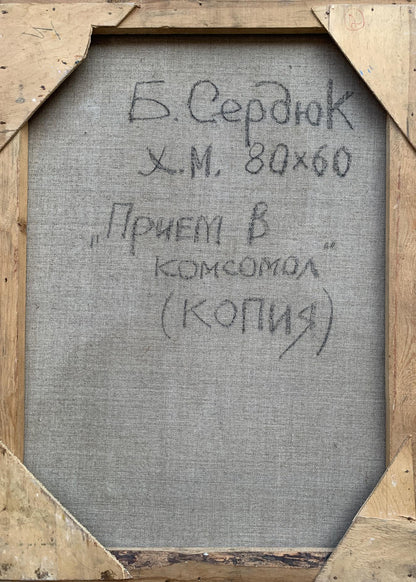 Б. Сердюк
х.м. 80×60
„Прием в
комсомол"
(копия)